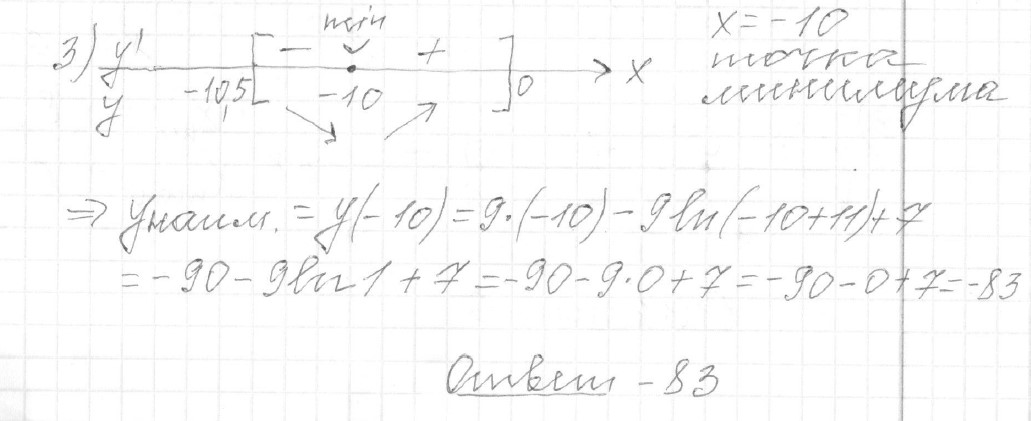 min
3) y' [ − + ] x = -10
-10,5 -10 0 x точка
y минимума
⇒ yнаим. = y(-10) = 9·(-10) - 9ln(-10+11)+7
= -90 - 9ln1 + 7 = -90 - 9·0 + 7 = -90 - 0 + 7 = -83
Ответ -83